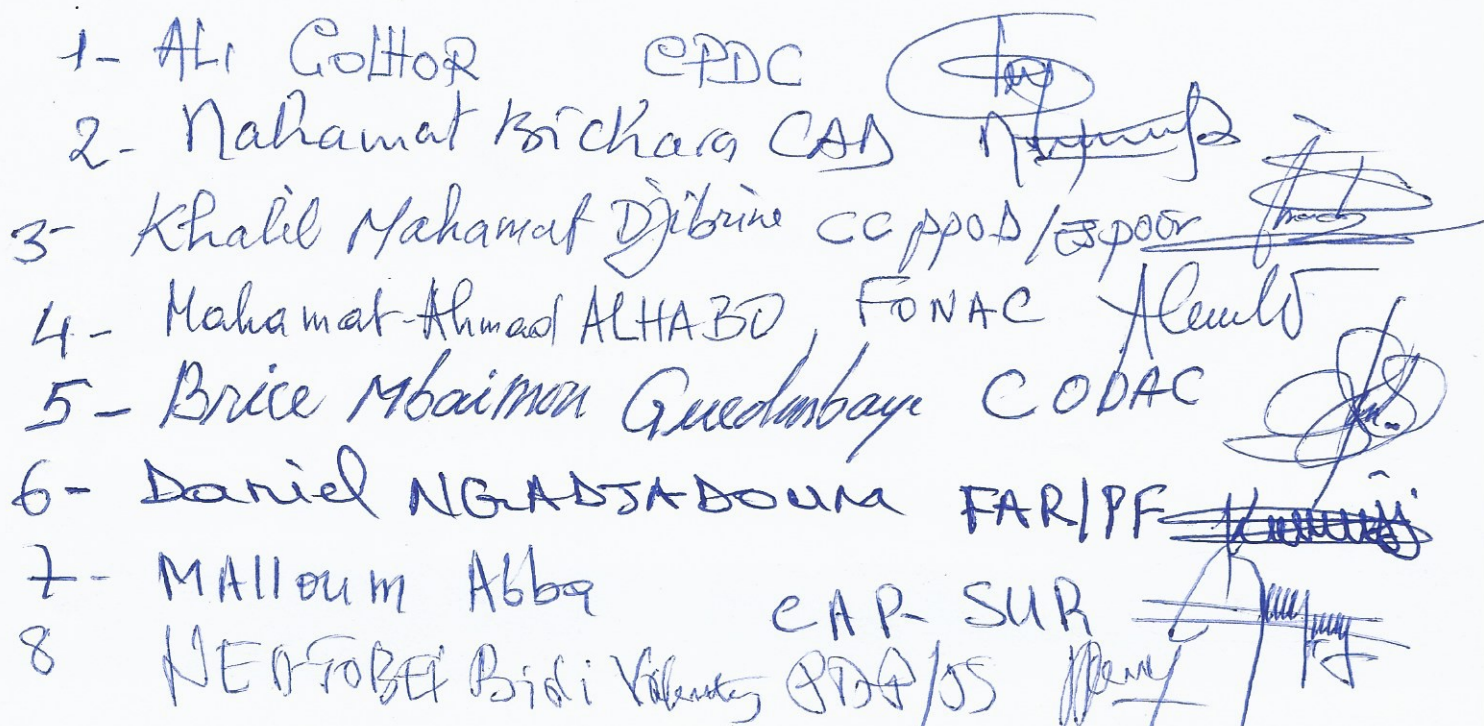 1- ALI GOLHOR CPDC
2- Mahamat Bichara CAD
3- Khalil Mahamat Djibrine CCPPOD/Espoir
4- Mahamat-Ahmad ALHABO, FONAC
5- Brice Mbaimon Guedmbaye CODAC
6- Daniel NGADJADOUM FAR/PF
7- MAlloum Abba CAP-SUR
8 Bidi